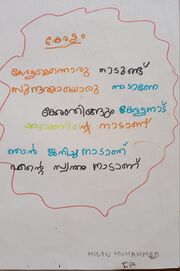 കേരളം
കേരളമെന്നൊരു നാടുണ്ട്
സുന്ദരമായൊരു നാടാണേ
കേരം തിങ്ങും കേരളനാട്
നാടാണ്
ഞാൻ ജനിച്ച നാടാണ്
എന്റെ സ്വന്തം നാടാണ്
HILAL MUHAMMED